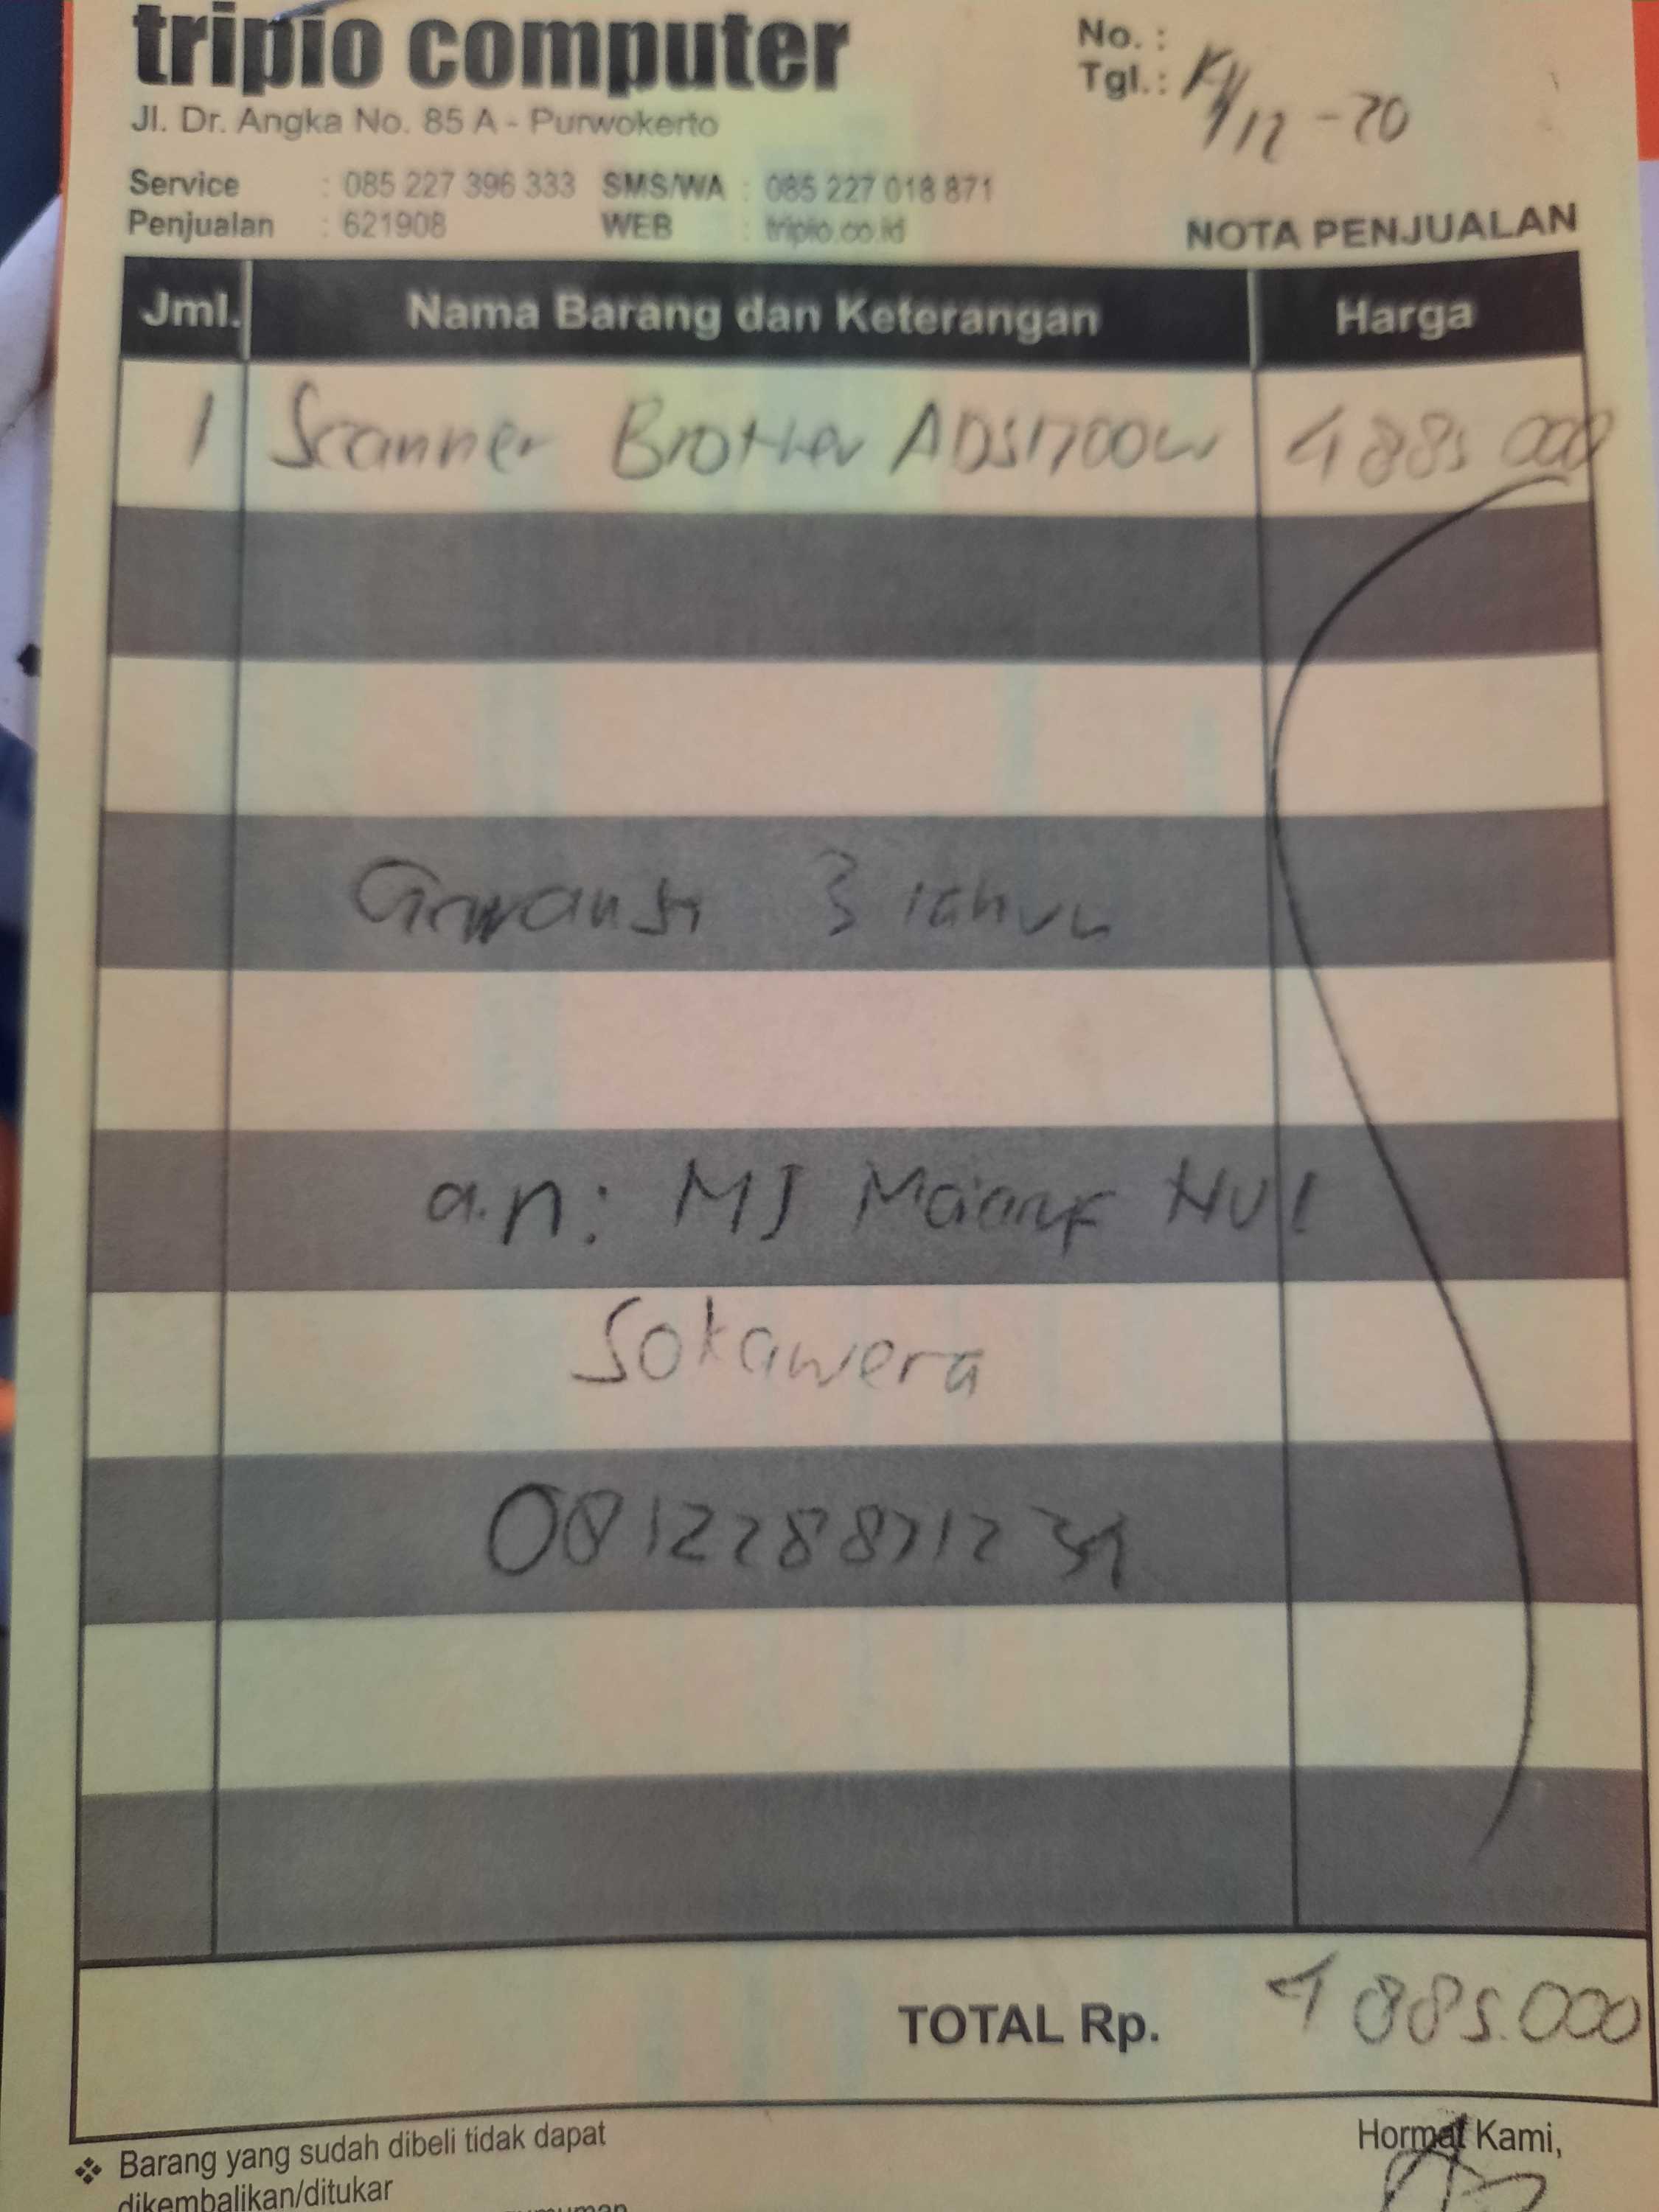 tripio computer
No. :
Tgl. : /12 - 20
Jl. Dr. Angka No. 85 A - Purwokerto
Service : 085 227 396 333 SMS/WA : 085 227 018 871
Penjualan : 621908 WEB : tripio.co.id
NOTA PENJUALAN
Jml. Nama Barang dan Keterangan Harga
1 Scanner Brother ADS1700W 4885 000
Garansi 3 tahun
a.n: MI Maarif NU 1
Sokawera
TOTAL Rp. 4 885.000
Barang yang sudah dibeli tidak dapat
dikembalikan/ditukar
Hormat Kami,